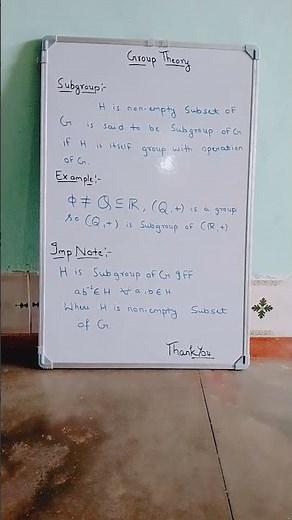 Group Theory
Subgroup:-
H is non-empty Subset of
G is said to be Subgroup of G
if H is itself group with operation
of G.
Example:-
ϕ ≠ ℚ ⊆ ℝ, (ℚ,+) is a group
so (ℚ,+) is Subgroup of (ℝ,+)
Imp Note:-
H is Subgroup of G iff
ab⁻¹ ∈ H ∀ a,b ∈ H
Where H is non-empty Subset
of G.
Thank You